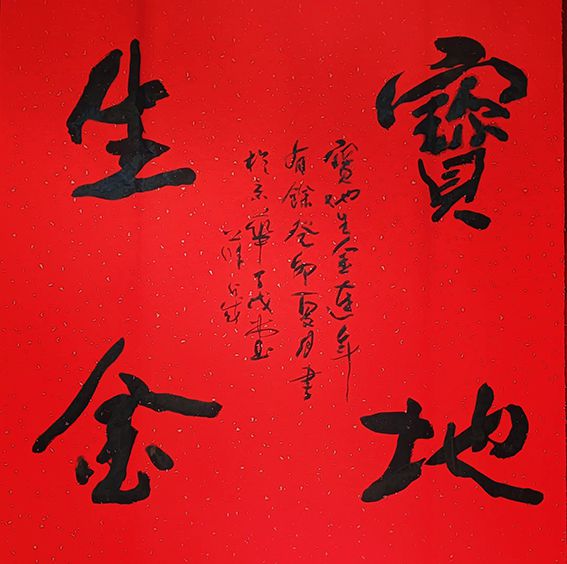 寶地
生金
寶地生金連年
有餘癸卯夏月書
於京華